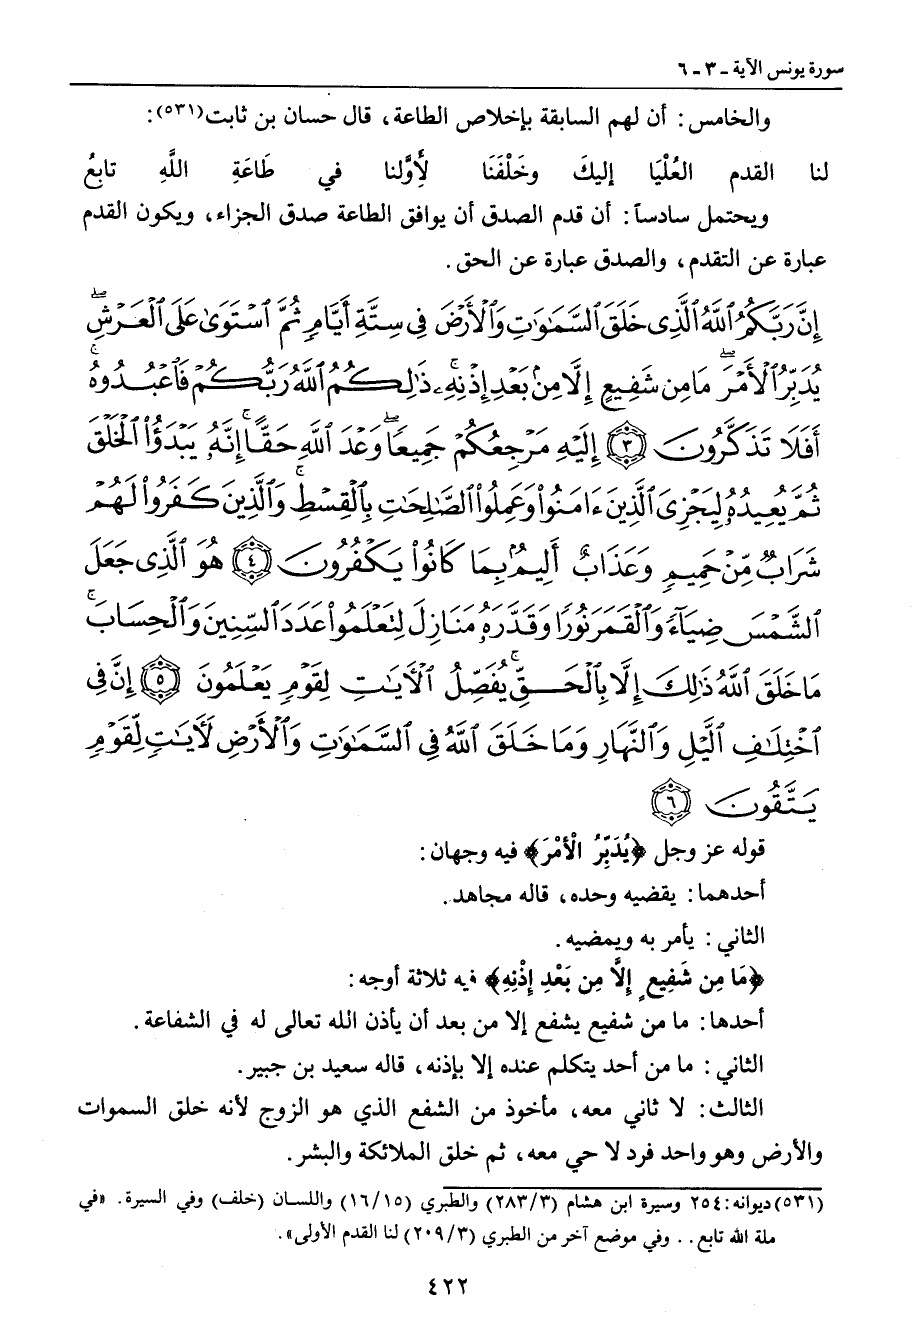 سورة يونس الآية ـ ٣ ـ ٦
والخامس: أن لهم السابقة بإخلاص الطاعة، قال حسان بن ثابت(٥٣١):
لنا القدم العُلْيَا إليكَ وخَلْفَنَا لأَوَّلنا في طَاعَةِ اللَّهِ تابعُ
ويحتمل سادساً: أن قدم الصدق أن يوافق الطاعة صدق الجزاء، ويكون القدم
عبارة عن التقدم، والصدق عبارة عن الحق.
إِنَّ رَبَّكُمُ ٱللَّهُ ٱلَّذِى خَلَقَ ٱلسَّمَٰوَٰتِ وَٱلْأَرْضَ فِى سِتَّةِ أَيَّامٍ ثُمَّ ٱسْتَوَىٰ عَلَى ٱلْعَرْشِۖ
يُدَبِّرُ ٱلْأَمْرَۖ مَا مِن شَفِيعٍ إِلَّا مِنۢ بَعْدِ إِذْنِهِۦۚ ذَٰلِكُمُ ٱللَّهُ رَبُّكُمْ فَٱعْبُدُوهُۚ
أَفَلَا تَذَكَّرُونَ ٣ إِلَيْهِ مَرْجِعُكُمْ جَمِيعًاۖ وَعْدَ ٱللَّهِ حَقًّاۚ إِنَّهُۥ يَبْدَؤُا۟ ٱلْخَلْقَ
ثُمَّ يُعِيدُهُۥ لِيَجْزِىَ ٱلَّذِينَ ءَامَنُوا۟ وَعَمِلُوا۟ ٱلصَّٰلِحَٰتِ بِٱلْقِسْطِۚ وَٱلَّذِينَ كَفَرُوا۟ لَهُمْ
شَرَابٌ مِّنْ حَمِيمٍ وَعَذَابٌ أَلِيمٌۢ بِمَا كَانُوا۟ يَكْفُرُونَ ٤ هُوَ ٱلَّذِى جَعَلَ
ٱلشَّمْسَ ضِيَآءً وَٱلْقَمَرَ نُورًا وَقَدَّرَهُۥ مَنَازِلَ لِتَعْلَمُوا۟ عَدَدَ ٱلسِّنِينَ وَٱلْحِسَابَۚ
مَا خَلَقَ ٱللَّهُ ذَٰلِكَ إِلَّا بِٱلْحَقِّۚ يُفَصِّلُ ٱلْأَيَٰتِ لِقَوْمٍ يَعْلَمُونَ ٥ إِنَّ فِى
ٱخْتِلَٰفِ ٱلَّيْلِ وَٱلنَّهَارِ وَمَا خَلَقَ ٱللَّهُ فِى ٱلسَّمَٰوَٰتِ وَٱلْأَرْضِ لَأَيَٰتٍ لِّقَوْمٍ
يَتَّقُونَ ٦
قوله عز وجل ﴿يُدَبِّرُ الْأَمْرَ﴾ فيه وجهان:
أحدهما: يقضيه وحده، قاله مجاهد.
الثاني: يأمر به ويمضيه.
﴿مَا مِن شَفِيعٍ إِلَّا مِن بَعْدِ إِذْنِهِ﴾ فيه ثلاثة أوجه:
أحدها: ما من شفيع يشفع إلا من بعد أن يأذن الله تعالى له في الشفاعة.
الثاني: ما من أحد يتكلم عنده إلا بإذنه، قاله سعيد بن جبير.
الثالث: لا ثاني معه، مأخوذ من الشفع الذي هو الزوج لأنه خلق السموات
والأرض وهو واحد فرد لا حي معه، ثم خلق الملائكة والبشر.
(٥٣١) ديوانه: ٢٥٤ وسيرة ابن هشام (٢٨٣/٣) والطبري (١٦/١٥) واللسان (خلف) وفي السيرة. «في
ملة الله تابع.. وفي موضع آخر من الطبري (٢٠٩/٣) لنا القدم الأولى».
٤٢٢